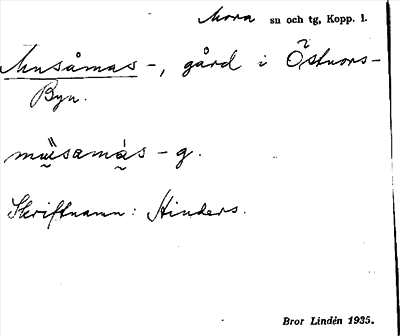 Mora sn och tg, Kopp. l.
Musåmas -, gård i Östnors-
Byn.
mu̬̎samàs - g.
Skriftnamn: Hinders.
Bror Lindén 1935.